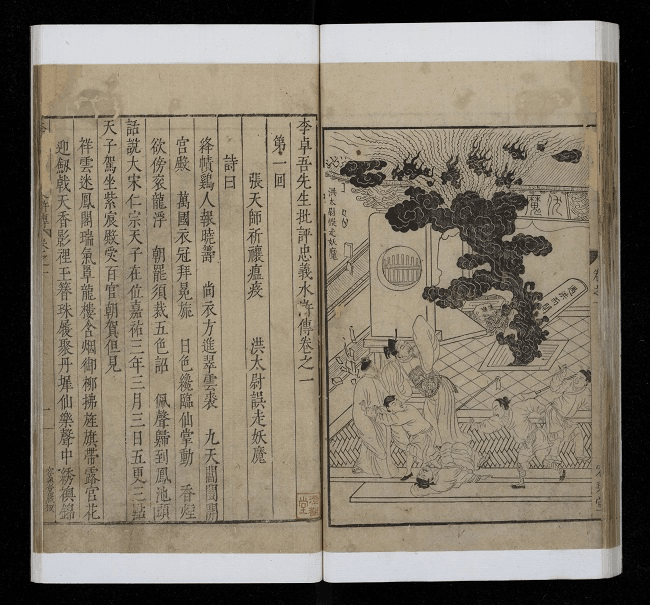 伏魔
洪太尉誤走妖魔
遇洪而開
李卓吾先生批評忠義水滸傳卷之一
第一回
張天師祈禳瘟疫 洪太尉誤走妖魔
詩曰
絳幘鷄人報曉籌 尚衣方進翠雲裘 九天閶闔開
宮殿 萬國衣冠拜冕旒 日色纔臨仙掌動 香煙
欲傍衮龍浮 朝罷須裁五色詔 佩聲歸到鳳池頭
話說大宋仁宗天子在位嘉祐三年三月三日五更三點
天子駕坐紫宸殿受百官朝賀但見
祥雲迷鳳閣瑞氣罩龍樓含烟御柳拂旌旗帶露宮花
迎劍戟天香影裡玉簪珠履聚丹墀仙樂聲中綉襖錦